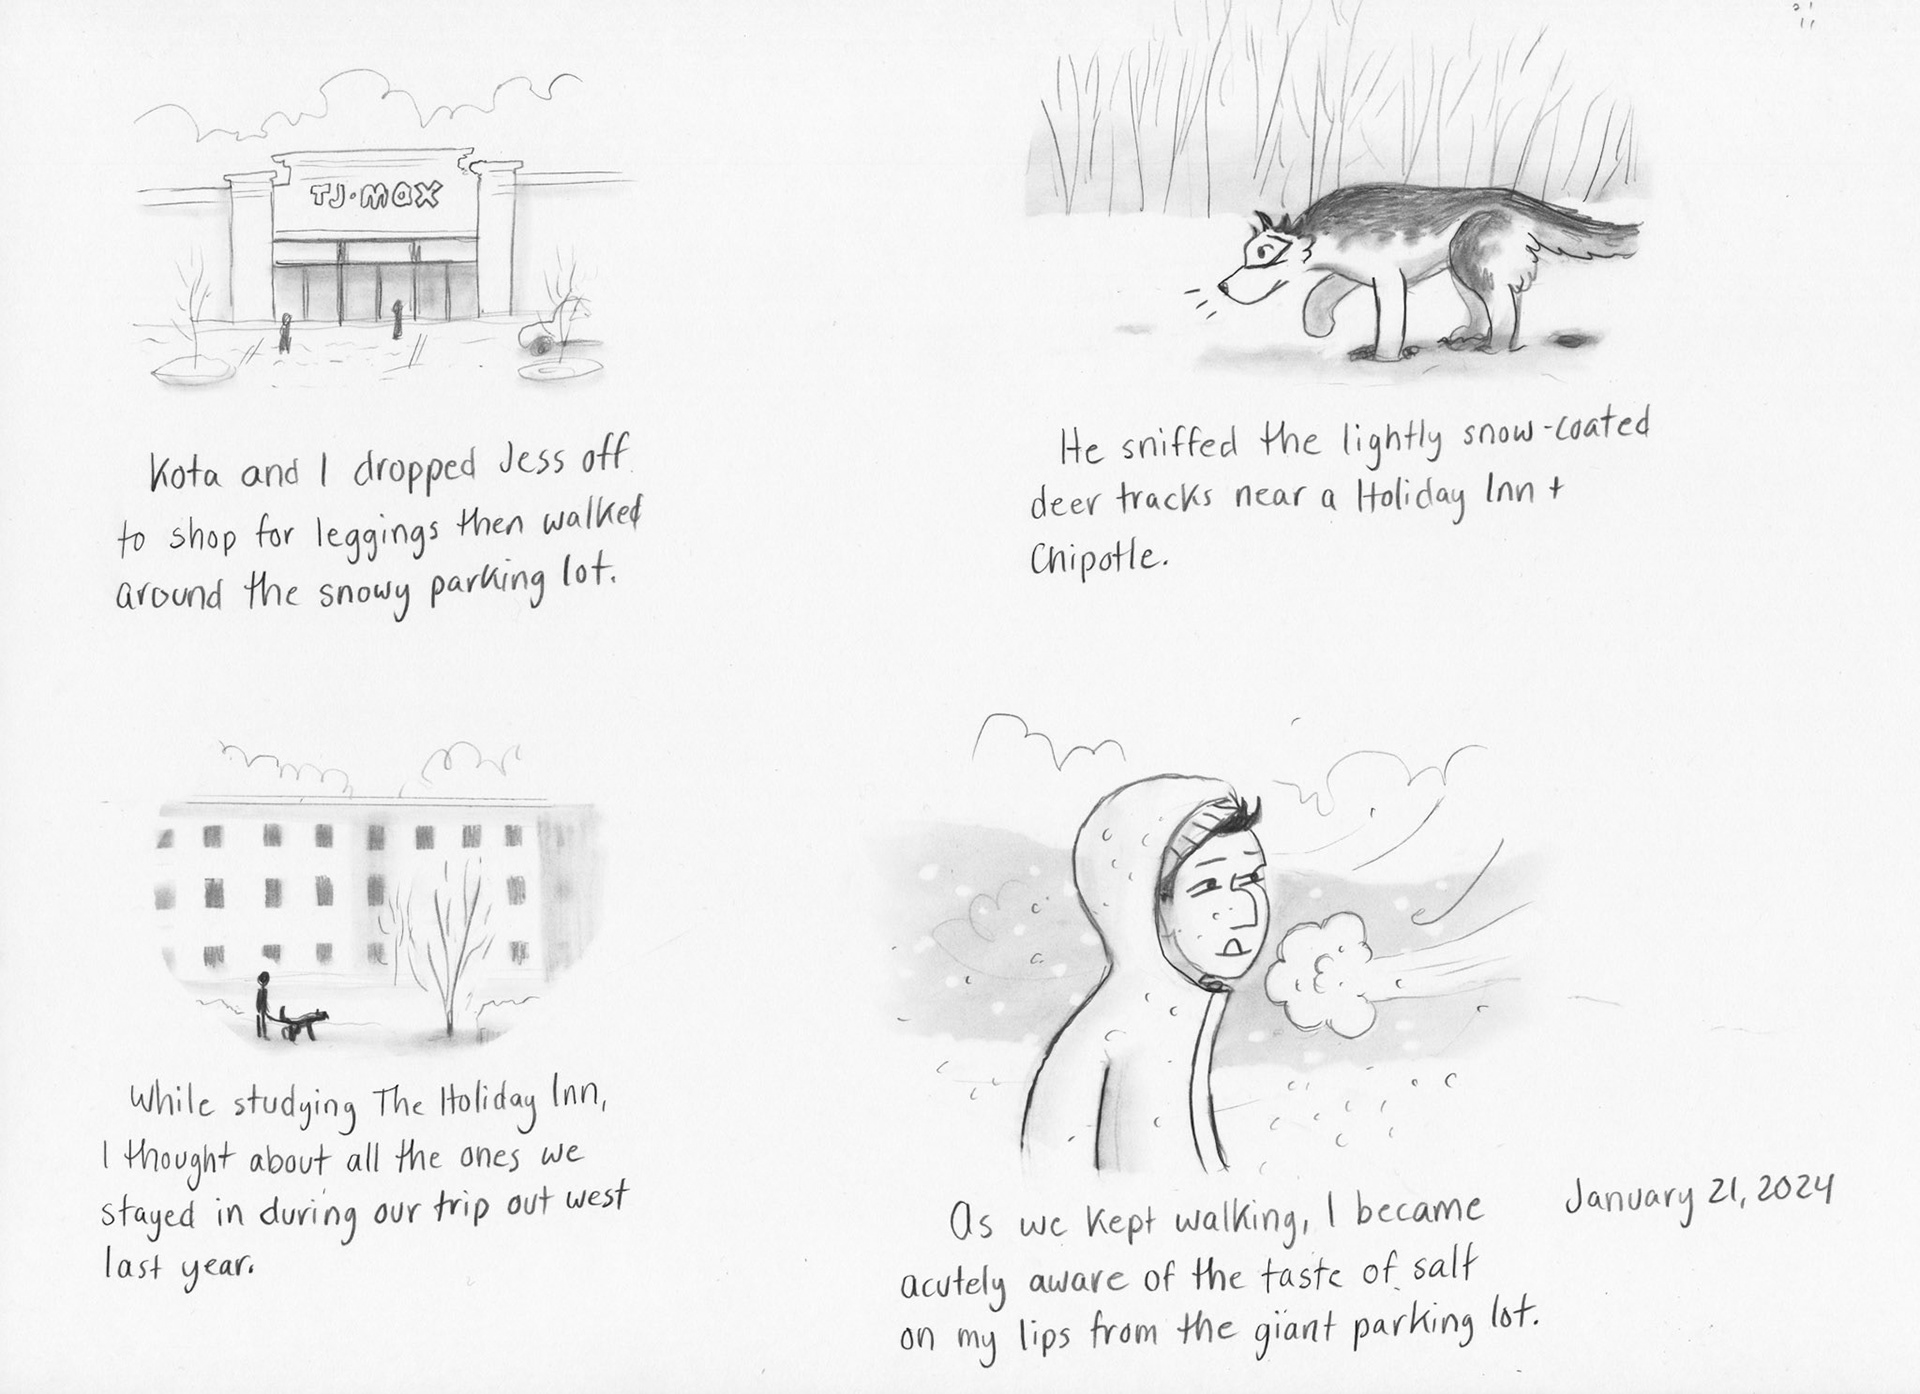 TJ·MAX
Kota and I dropped Jess off
to shop for leggings then walked
around the snowy parking lot.
He sniffed the lightly snow-coated
deer tracks near a Holiday Inn +
Chipotle.
While studying The Holiday Inn,
I thought about all the ones we
stayed in during our trip out west
last year.
As we kept walking, I became
acutely aware of the taste of salt
on my lips from the giant parking lot.
January 21, 2024